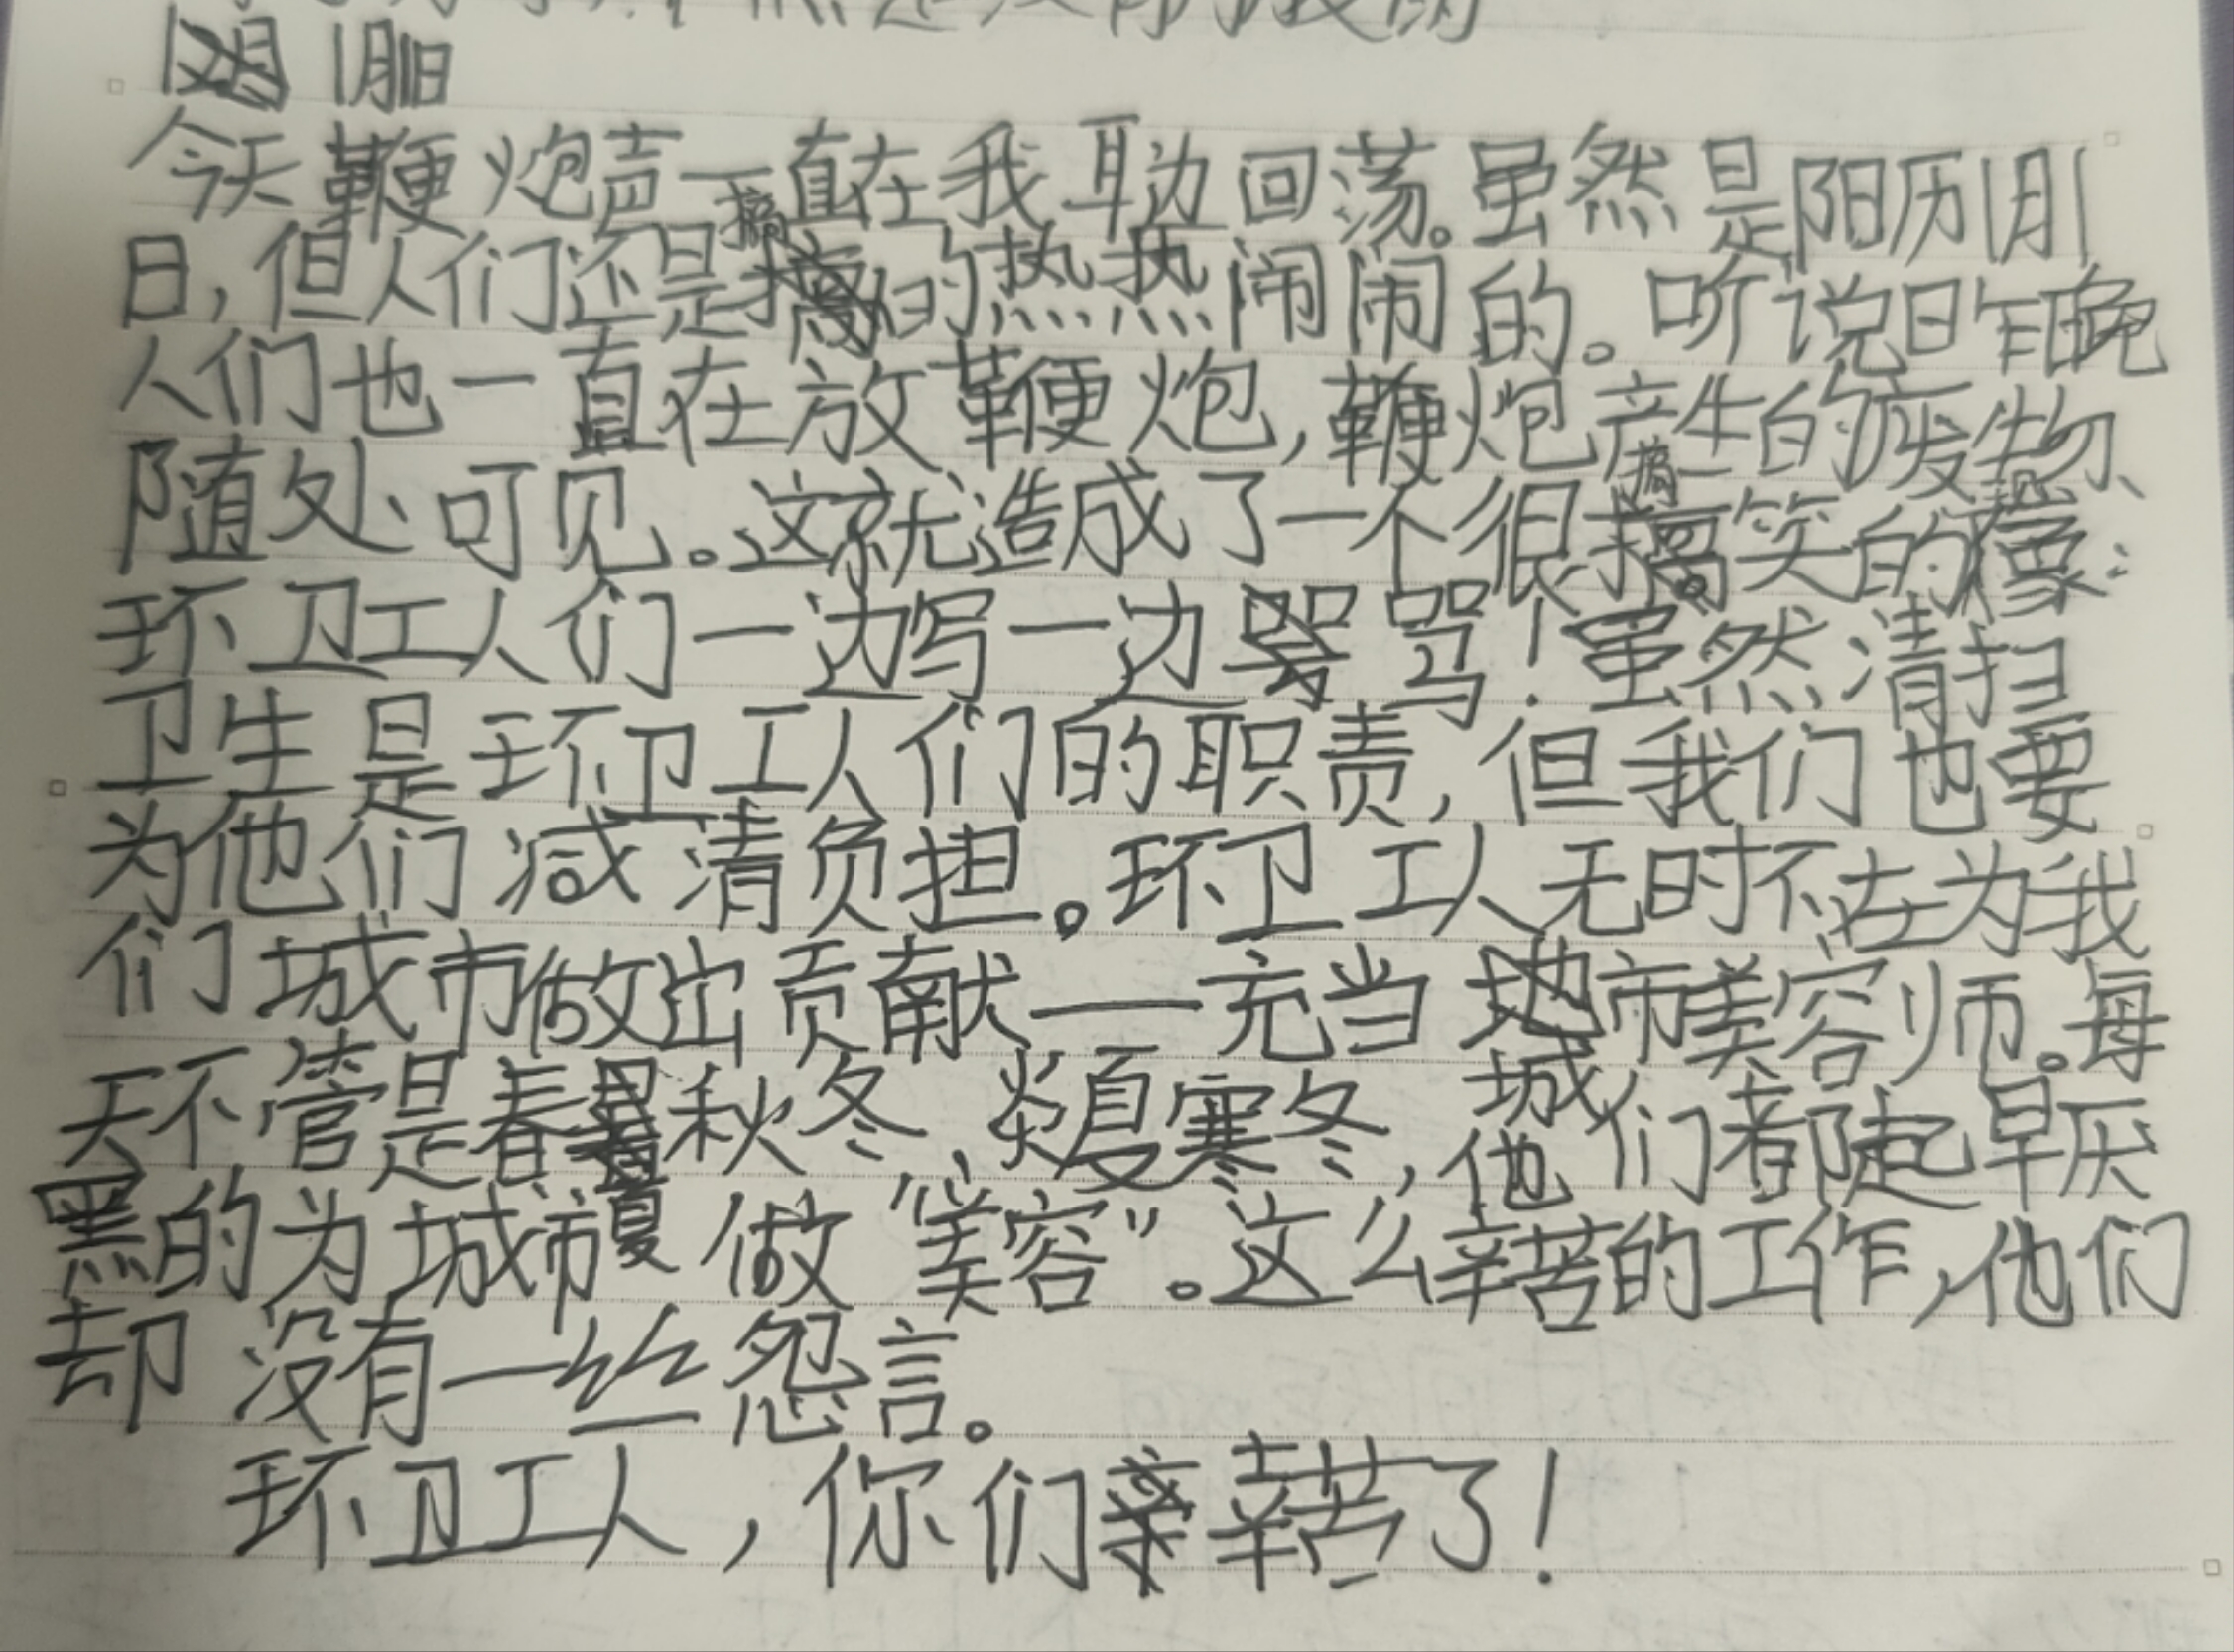 1月1日
今天鞭炮声一直在我耳边回荡。虽然是阳历1月1
日，但人们还是搞的热热闹闹的。听说日昨晚
人们也一直在放鞭炮，鞭炮产生的废物、
随处可见。这就造成了一个很搞笑的现像：
环卫工人们一边写一边骂！虽然清扫
卫生是环卫工人们的职责，但我们也要
为他们减清负担。环卫工人无时不在为我
们城市做出贡献——充当城市美容师。每
天不管是春夏秋冬、炎夏寒冬，他们都起早厌
黑的为城市做“美容”。这么辛苦的工作，他们
却没有一丝怨言。
环卫工人，你们辛苦了！